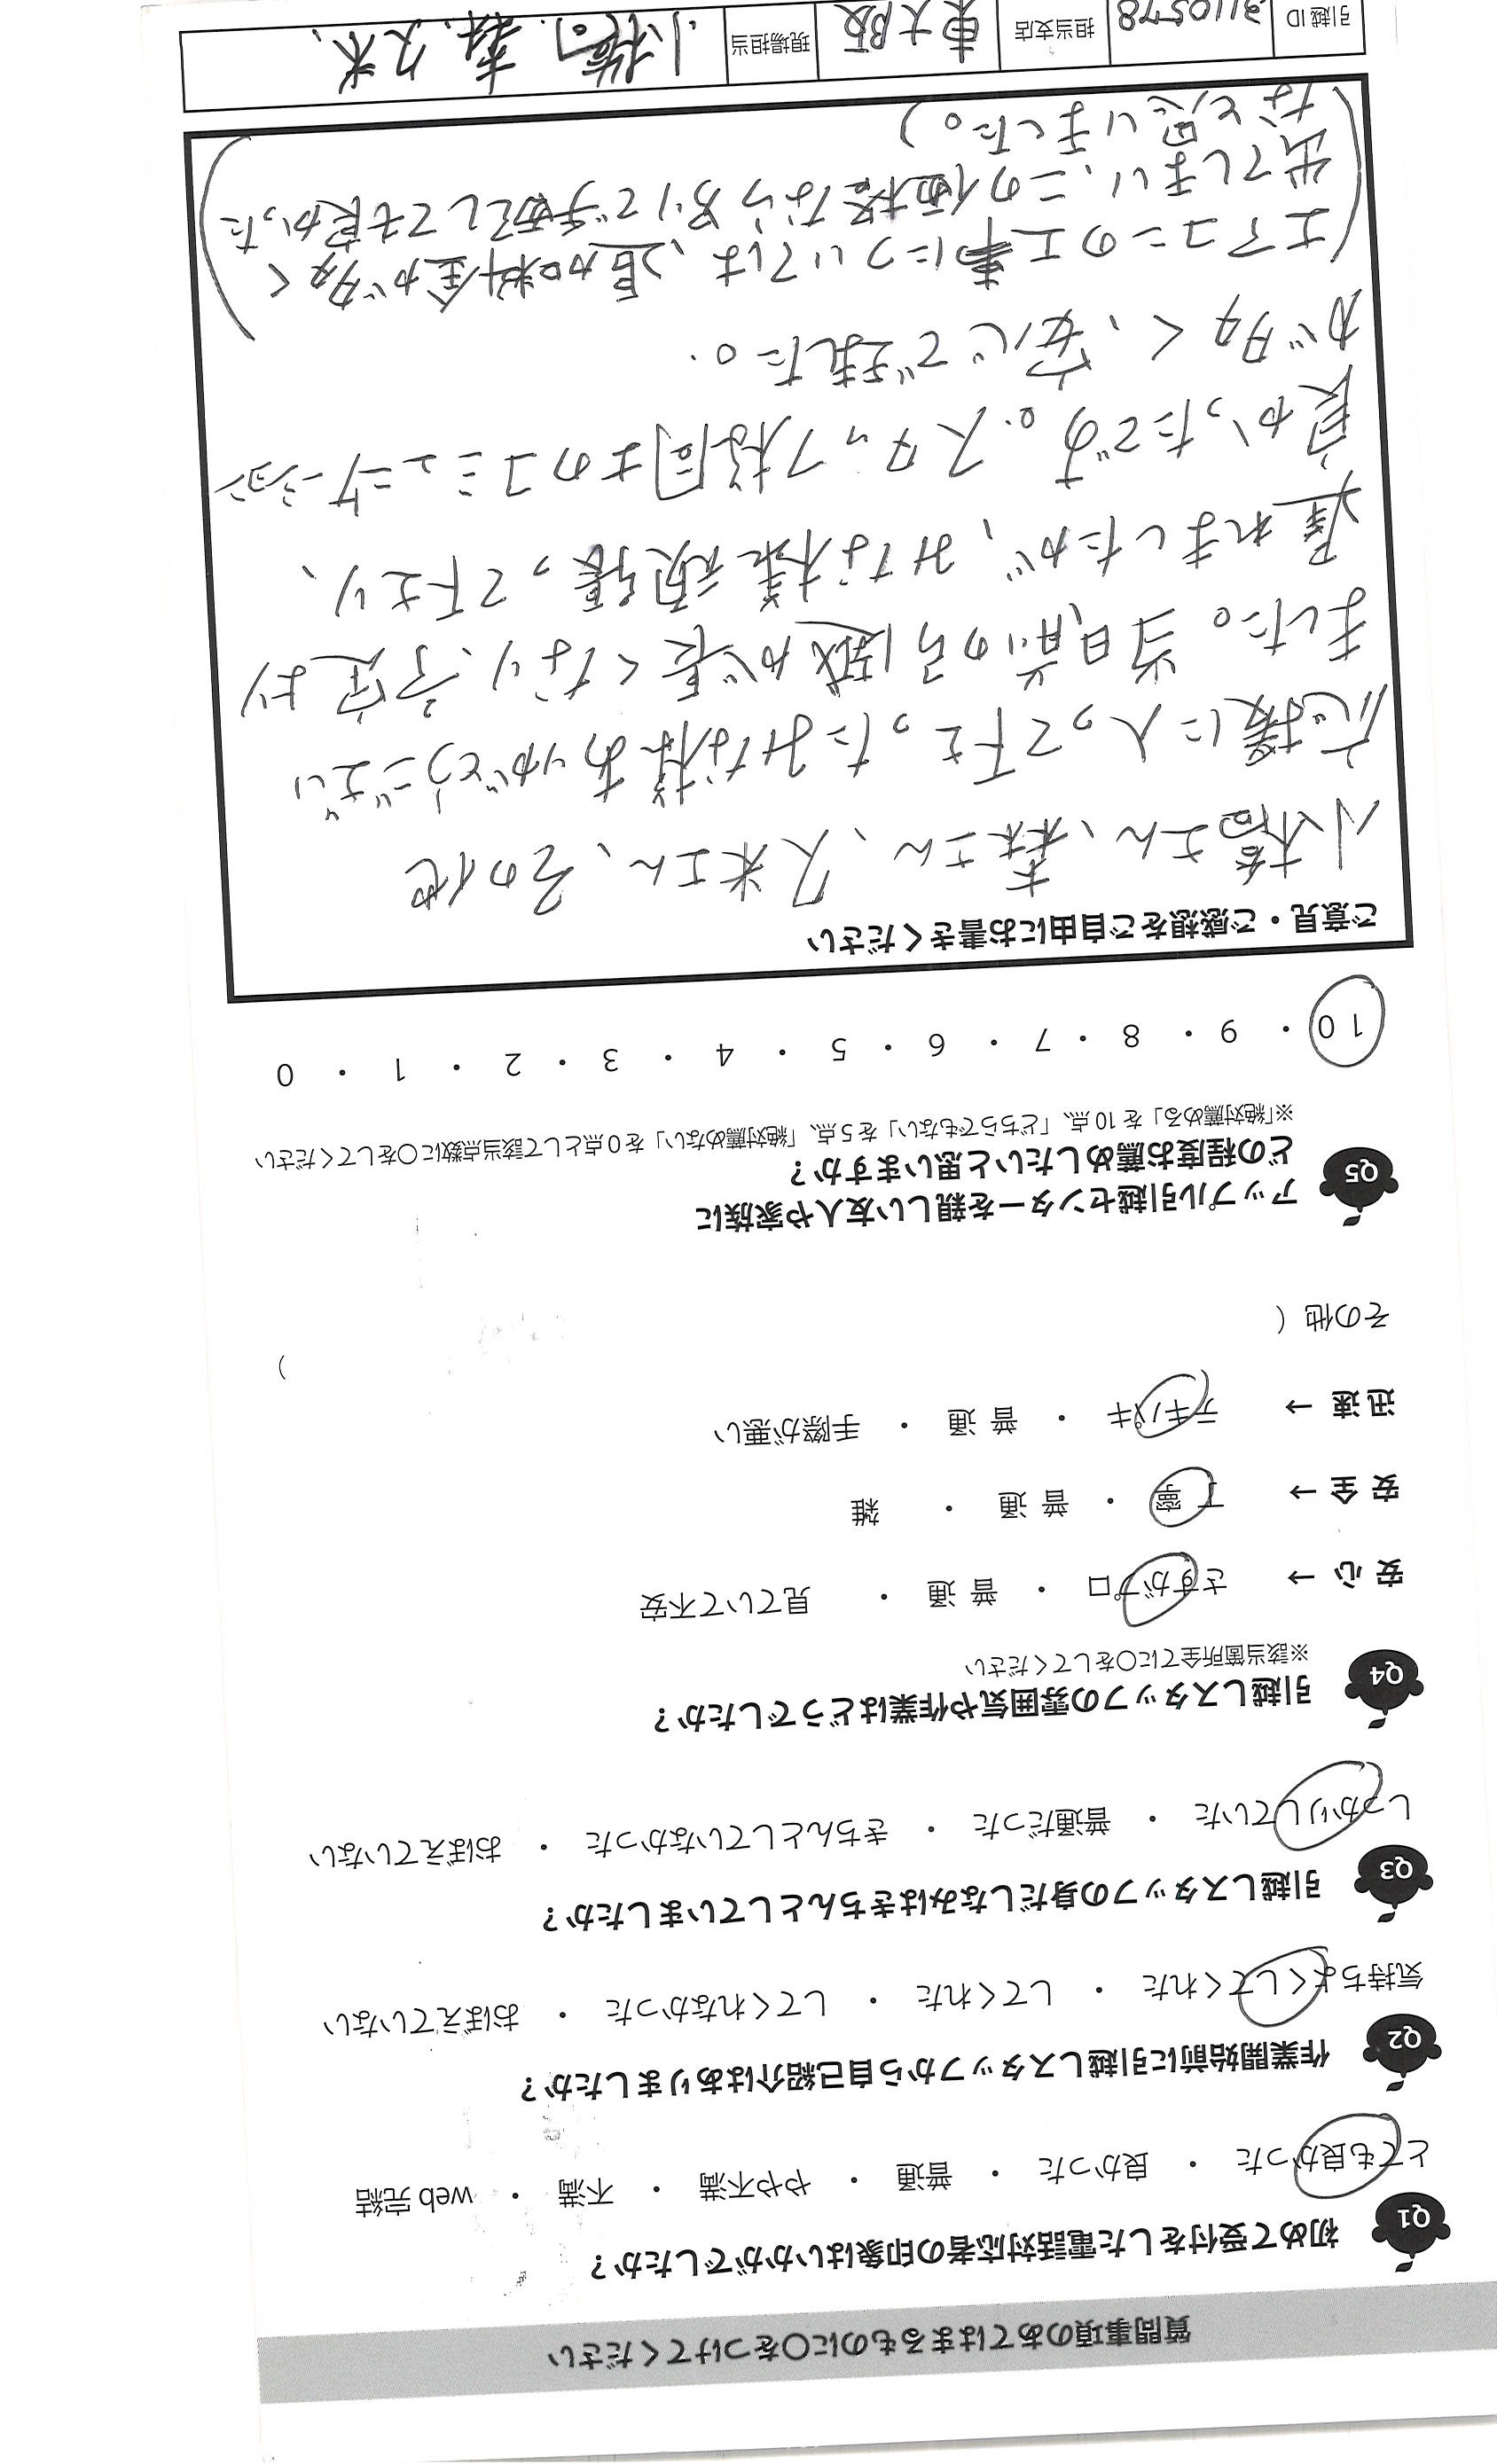 質問事項のあてはまるものに〇をつけてください
Q1 初めて受付をした電話対応者の印象はいかがでしたか？
とても良かった ・ 良かった ・ 普通 ・ やや不満 ・ 不満 ・ web 完結
Q2 作業開始前に引越しスタッフから自己紹介はありましたか？
気持ちよくしてくれた ・ してくれた ・ してくれなかった ・ おぼえていない
Q3 引越しスタッフの身だしなみはきちんとしていましたか？
しっかりしていた ・ 普通だった ・ きちんとしていなかった ・ おぼえていない
Q4 引越しスタッフの雰囲気や作業はどうでしたか？
※該当箇所全てに〇をしてください
安心 → さすがプロ ・ 普通 ・ 見ていて不安
安全 → 丁寧 ・ 普通 ・ 雑
迅速 → テキパキ ・ 普通 ・ 手際が悪い
その他（ ）
Q5 アップル引越センターを親しい友人や家族に
どの程度お薦めしたいと思いますか？
※「絶対薦める」を 10 点、「どちらでもない」を 5 点、「絶対薦めない」を 0 点として該当点数に〇をしてください
10 ・ 9 ・ 8 ・ 7 ・ 6 ・ 5 ・ 4 ・ 3 ・ 2 ・ 1 ・ 0
ご意見・ご感想をご自由にお書きください
小橋さん、森さん、久米さん、その他
応援に入って下さったみな様ありがとうござい
ました。当日、前の引越が長くなり、予定より
遅れましたが、みな様頑張って下さり、
良かったです。スタッフ様同士のコミュニケーション
が多く、安心できました。
（エアコンの工事については、追加料金が多く
出てしまい、この価格なら別で手配しても良かった
なと思いました。）
引越 ID 3110578 担当支店 東大阪 現場担当 小橋、森、久米、